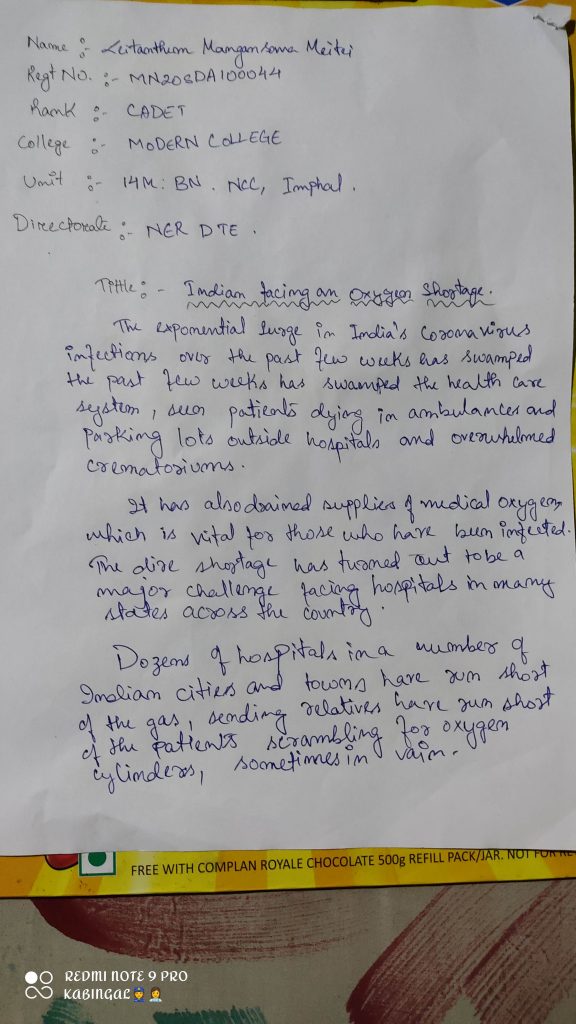 Name :- Leitanthem Mangansama Meitei
Regt No. :- MN20SDA100044
Rank :- CADET
College :- MODERN COLLEGE
Unit :- 14 M: BN. NCC, Imphal.
Directorate :- NER DTE.
Tittle :- Indian facing an Oxygen Shortage.
The exponential surge in India's Coronavirus
infections over the past few weeks has swamped
the past few weeks has swamped the health care
system, seen patients dying in ambulances and
parking lots outside hospitals and overwhelmed
crematoriums.
It has also drained supplies of medical oxygen,
which is vital for those who have been infected.
The dire shortage has turned out to be a
major challenge facing hospitals in many
states across the country.
Dozens of hospitals in a number of
Indian cities and towns have run short
of the gas, sending relatives have run short
of the patients scrambling for oxygen
cylinders, sometimes in vain.
FREE WITH COMPLAN ROYALE CHOCOLATE 500g REFILL PACK/JAR. NOT FOR RE
REDMI NOTE 9 PRO
KABINGAL